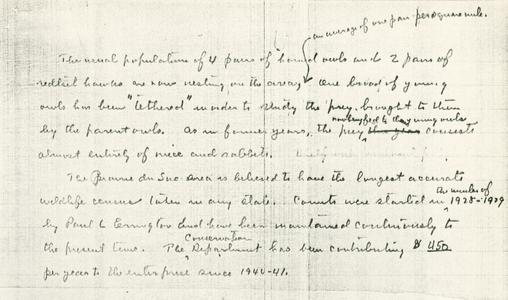 an average of one pair per square mile.
The usual population of 4 pairs of horned owls and 2 pairs of
redtail hawks are now nesting on the area, One brood of young
owls has been "tethered" in order to study the prey brought to them
by the parent owls. As in former years, the prey now being fed to the young owls consists
almost entirely of mice and rabbits.
The Prairie du Sac area is believed to have the longest accurate
wildlife census taken in any state. Counts were started in the winter of 1928-1929
by Paul L. Errington and have been maintained continuously to
the present time. The Conservation Department has been contributing $ 450
per year to the enterprise since 1940-41.